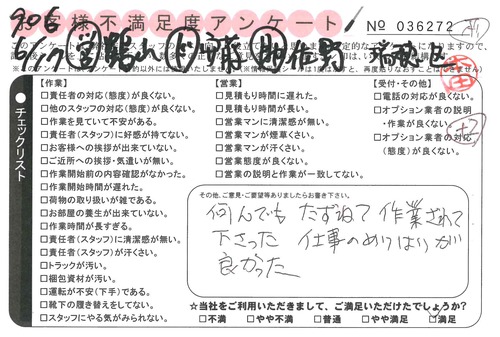 お客様不満足度アンケート
No 036272
【作業】
□責任者の対応(態度)が良くない。
□他のスタッフの対応(態度)が良くない。
□作業を見ていて不安がある。
□責任者(スタッフ)に好感が持てない。
□お客様への挨拶が出来ていない。
□ご近所への挨拶・気遣いが無い。
□作業開始前の内容確認がなかった。
□作業開始時間が遅れた。
□荷物の取り扱いが雑である。
□お部屋の養生が出来ていない。
□責任者(スタッフ)に清潔感が無い。
□責任者(スタッフ)が汗くさい。
□トラックが汚い。
□梱包資材が汚い。
□運転が不安(下手)である。
□靴下の履き替えをしてない。
□スタッフにやる気がみられない。
【営業】
□見積もり時間に遅れた。
□見積もり時間が長い。
□営業マンに清潔感が無い。
□営業マンが煙草くさい。
□営業マンが汗くさい。
□営業態度が良くない。
□営業の説明と作業が一致してない。
【受付・その他】
□電話の対応が良くない。
□オプション業者の説明
・作業が良くない。
□オプション業者の対応
(態度)が良くない。
チェックリスト
その他、ご意見・ご要望等ありましたらお書き下さい。
何んでも たずねて 作業されて
下さった 仕事のめりはりが
良かった
☆当社をご利用いただきまして、ご満足いただけたでしょうか?
□不満 □やや不満 □普通 □やや満足 □満足